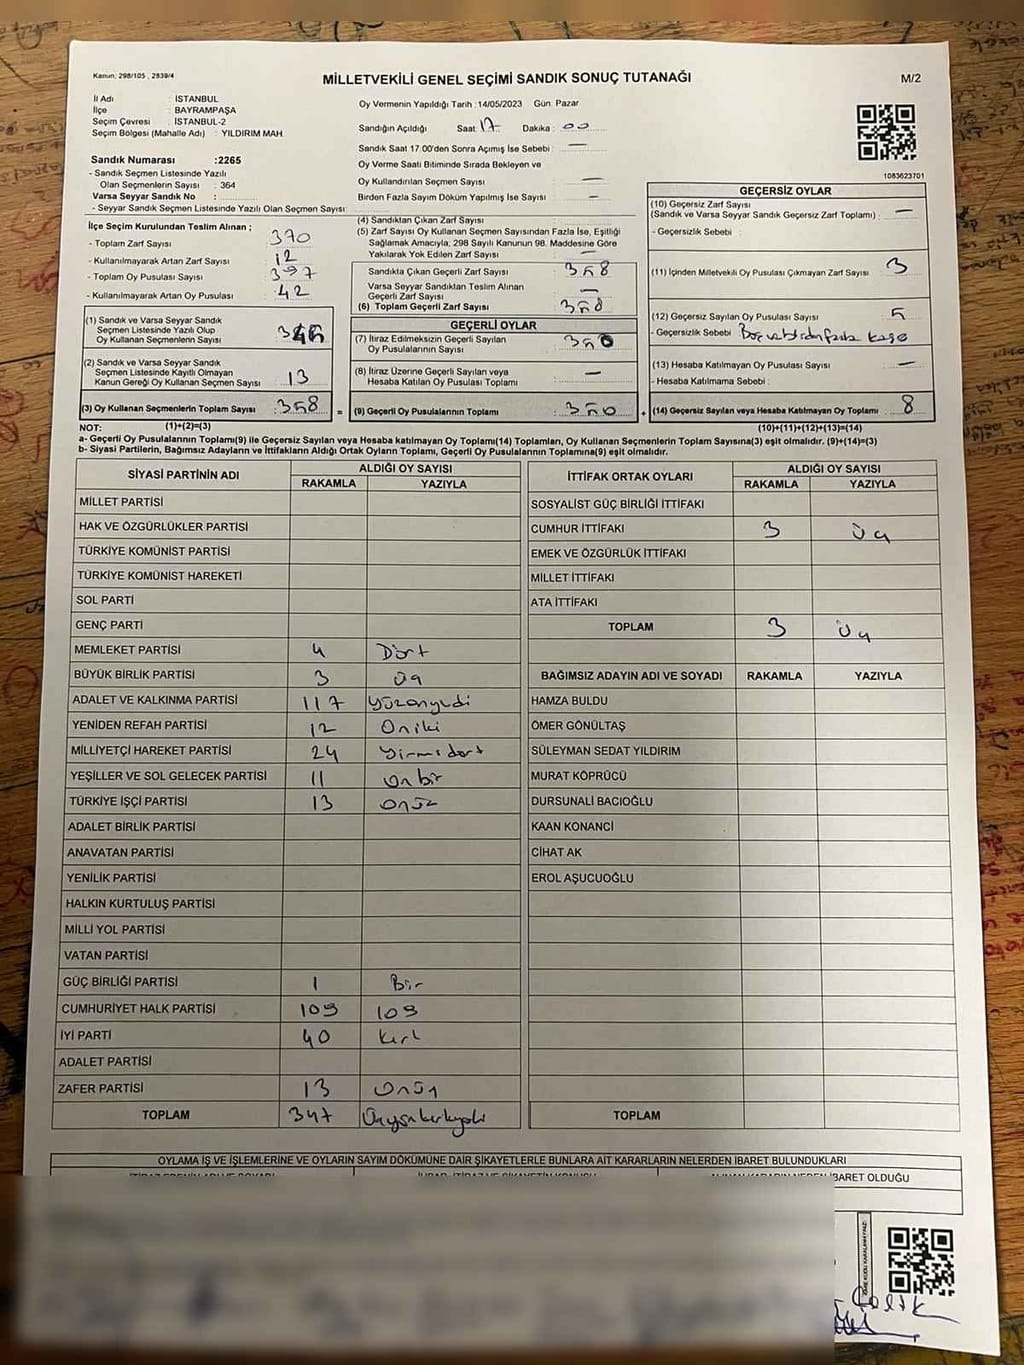 Kanun, 298/105 , 2839/4
MİLLETVEKİLİ GENEL SEÇİMİ SANDIK SONUÇ TUTANAĞI
M/2
İl Adı : İSTANBUL
İlçe : BAYRAMPAŞA
Seçim Çevresi : İSTANBUL-2
Seçim Bölgesi (Mahalle Adı) : YILDIRIM MAH
Sandık Numarası :2265
- Sandık Seçmen Listesinde Yazılı
Olan Seçmenlerin Sayısı : 364
Varsa Seyyar Sandık No :
- Seyyar Sandık Seçmen Listesinde Yazılı Olan Seçmen Sayısı:
Oy Vermenin Yapıldığı Tarih :14/05/2023 Gün: Pazar
Sandığın Açıldığı Saat: 17 Dakika : 00
Sandık Saat 17.00'den Sonra Açımış İse Sebebi : —
Oy Verme Saati Bitiminde Sırada Bekleyen ve
Oy Kullandırılan Seçmen Sayısı : —
Birden Fazla Sayım Döküm Yapılmış İse Sayısı : —
1083623701
İlçe Seçim Kurulundan Teslim Alınan ;
- Toplam Zarf Sayısı : 370
- Kullanılmayarak Artan Zarf Sayısı : 12
- Toplam Oy Pusulası Sayısı : 397
- Kullanılmayarak Artan Oy Pusulası : 42
(1) Sandık ve Varsa Seyyar Sandık
Seçmen Listesinde Yazılı Olup
Oy Kullanan Seçmenlerin Sayısı :
(2) Sandık ve Varsa Seyyar Sandık
Seçmen Listesinde Kayıtlı Olmayan
Kanun Gereği Oy Kullanan Seçmen Sayısı : 13
(3) Oy Kullanan Seçmenlerin Toplam Sayısı : 358 =
(1)+(2)=(3)
(4) Sandıktan Çıkan Zarf Sayısı :
(5) Zarf Sayısı Oy Kullanan Seçmen Sayısından Fazla İse, Eşitliği
Sağlamak Amacıyla, 298 Sayılı Kanunun 98. Maddesine Göre
Yakılarak Yok Edilen Zarf Sayısı :
Sandıkta Çıkan Geçerli Zarf Sayısı : 358
Varsa Seyyar Sandıktan Teslim Alınan
Geçerli Zarf Sayısı : —
(6) Toplam Geçerli Zarf Sayısı : 358
GEÇERLİ OYLAR
(7) İtiraz Edilmeksizin Geçerli Sayılan
Oy Pusulalarının Sayısı : 350
(8) İtiraz Üzerine Geçerli Sayılan veya
Hesaba Katılan Oy Pusulası Toplamı : —
(9) Geçerli Oy Pusulalarının Toplamı : 350 +
GEÇERSİZ OYLAR
(10) Geçersiz Zarf Sayısı
(Sandık ve Varsa Seyyar Sandık Geçersiz Zarf Toplamı) : —
- Geçersizlik Sebebi :
(11) İçinden Milletvekili Oy Pusulası Çıkmayan Zarf Sayısı : 3
(12) Geçersiz Sayılan Oy Pusulası Sayısı : 5
- Geçersizlik Sebebi : Boş ve birden fazla kaşe
(13) Hesaba Katılmayan Oy Pusulası Sayısı : —
- Hesaba Katılmama Sebebi :
(14) Geçersiz Sayılan veya Hesaba Katılmayan Oy Toplamı : 8
(10)+(11)+(12)+(13)=(14)
NOT:
a- Geçerli Oy Pusulalarının Toplamı(9) ile Geçersiz Sayılan veya Hesaba katılmayan Oy Toplamı(14) Toplamları, Oy Kullanan Seçmenlerin Toplam Sayısına(3) eşit olmalıdır. (9)+(14)=(3)
b- Siyasi Partilerin, Bağımsız Adayların ve İttifakların Aldığı Ortak Oyların Toplamı, Geçerli Oy Pusulalarının Toplamına(9) eşit olmalıdır.
SİYASİ PARTİNİN ADI ALDIĞI OY SAYISI
RAKAMLA YAZIYLA
MİLLET PARTİSİ
HAK VE ÖZGÜRLÜKLER PARTİSİ
TÜRKİYE KOMÜNİST PARTİSİ
TÜRKİYE KOMÜNİST HAREKETİ
SOL PARTİ
GENÇ PARTİ
MEMLEKET PARTİSİ 4 Dört
BÜYÜK BİRLİK PARTİSİ 3 Üç
ADALET VE KALKINMA PARTİSİ 117 Yüzonyedi
YENİDEN REFAH PARTİSİ 12 Oniki
MİLLİYETÇİ HAREKET PARTİSİ 24 Yirmidört
YEŞİLLER VE SOL GELECEK PARTİSİ 11 Onbir
TÜRKİYE İŞÇİ PARTİSİ 13 Onüç
ADALET BİRLİK PARTİSİ
ANAVATAN PARTİSİ
YENİLİK PARTİSİ
HALKIN KURTULUŞ PARTİSİ
MİLLİ YOL PARTİSİ
VATAN PARTİSİ
GÜÇ BİRLİĞİ PARTİSİ 1 Bir
CUMHURİYET HALK PARTİSİ 109 109
İYİ PARTİ 40 Kırk
ADALET PARTİSİ
ZAFER PARTİSİ 13 Onüç
TOPLAM 347 Üçyüzkırkyedi
İTTİFAK ORTAK OYLARI ALDIĞI OY SAYISI
RAKAMLA YAZIYLA
SOSYALİST GÜÇ BİRLİĞİ İTTİFAKI
CUMHUR İTTİFAKI 3 Üç
EMEK VE ÖZGÜRLÜK İTTİFAKI
MİLLET İTTİFAKI
ATA İTTİFAKI
TOPLAM 3 Üç
BAĞIMSIZ ADAYIN ADI VE SOYADI RAKAMLA YAZIYLA
HAMZA BULDU
ÖMER GÖNÜLTAŞ
SÜLEYMAN SEDAT YILDIRIM
MURAT KÖPRÜCÜ
DURSUNALİ BACIOĞLU
KAAN KONANCİ
CİHAT AK
EROL AŞUCUOĞLU
TOPLAM
OYLAMA İŞ VE İŞLEMLERİNE VE OYLARIN SAYIM DÖKÜMÜNE DAİR ŞİKAYETLERLE BUNLARA AİT KARARLARIN NELERDEN İBARET BULUNDUKLARI
İBARET OLDUĞU
Çelik